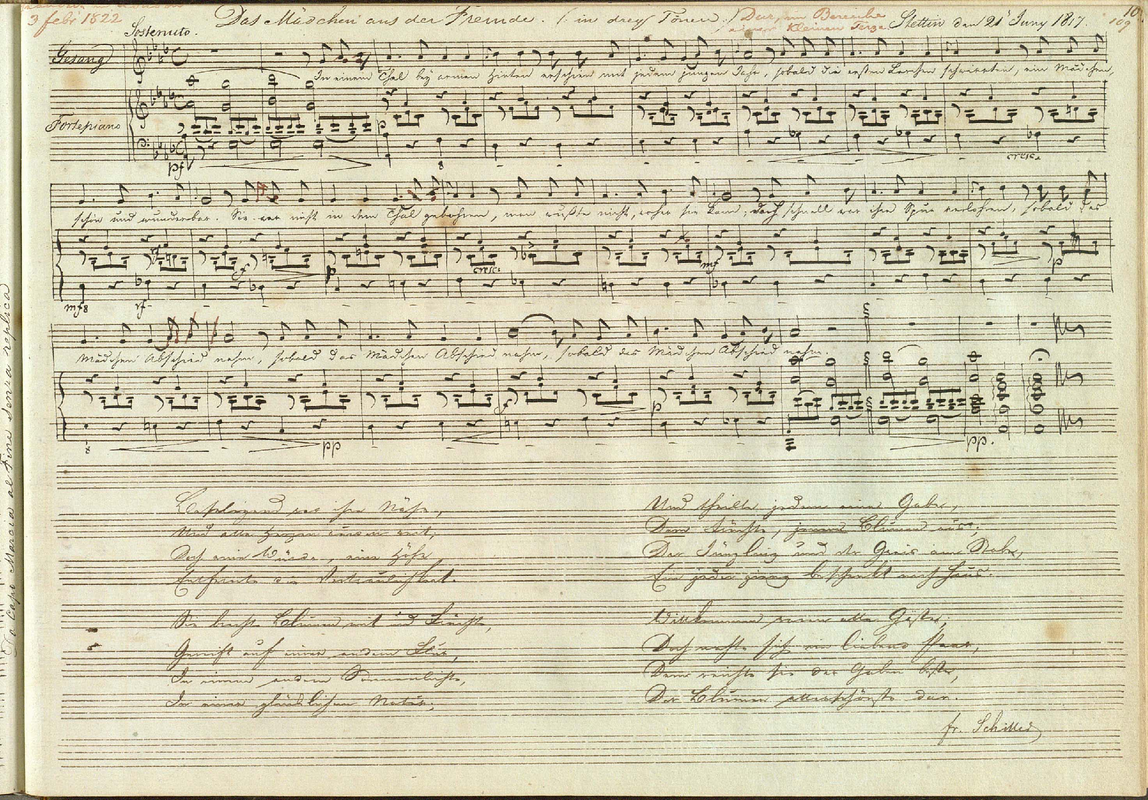 3 febr 1822
Das Mädchen aus der Fremde. (in drey Tönen.) Stettin den 21 Juny 1817.
kleinen Terze
109
Sostenuto.
Gesang
In einem Thal bey armen Hirten erschien mit jedem jungen Jahr, sobald die ersten Lerchen schwirrten, ein Mädchen,
Fortepiano
pf
p
cresc.
schön und wunderbar. Sie war nicht in dem Thal gebohren, man wußte nicht, woher sie kam, doch schnell war ihre Spur verlohren, sobald das
mf
rf
p
cresc.
mf
p
Mädchen Abschied nahm, sobald das Mädchen Abschied nahm, sobald das Mädchen Abschied nahm.
pp
p
pp.
Beseligend war ihre Nähe,
Und alle Herzen wurden weit;
Doch eine Würde, eine Höhe
Entfernte die Vertraulichkeit.
Sie brachte Blumen mit und Früchte,
Gereift auf einer andern Flur,
In einem andern Sonnenlichte,
In einer glücklichern Natur;
Und theilte jedem eine Gabe,
Dem Früchte, jenem Blumen aus;
Der Jüngling und der Greis am Stabe,
Ein jeder ging beschenkt nach Haus.
Willkommen waren alle Gäste;
Doch nahte sich ein liebend Paar,
Dem reichte sie der Gaben beste,
Der Blumen allerschönste dar.
fr. Schiller
Da Capo Marcia al Fine senza replica